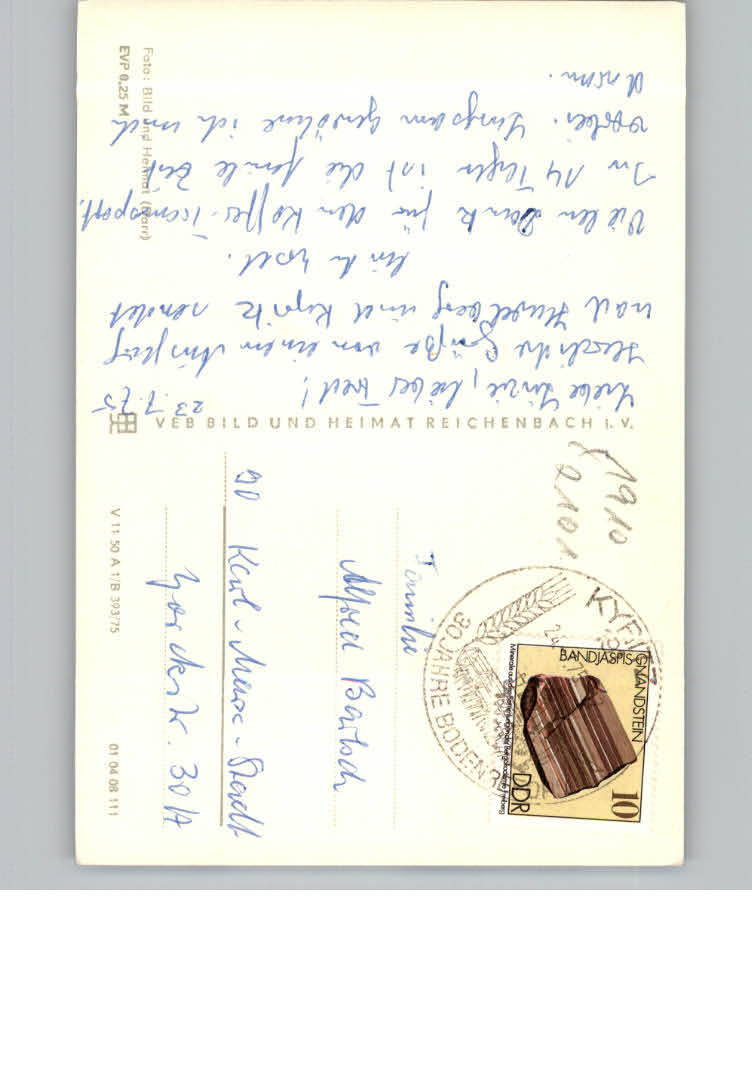 23.7.75
Liebe Linzi, lieber Fred!
Herzliche Grüße von einem Ausflug
nach Havelberg und Kyritz sendet
Euch
Vielen Dank für den Koffer-Transport.
In 14 Tagen ist die schöne Zeit
vorbei. Langsam gewöhne ich mich
daran.
Foto: Bild und Heimat (Darr)
EVP 0,25 M
VEB BILD UND HEIMAT REICHENBACH i. V.
V 11 50 A 1/B 393/75
01 04 08 111
1910
2101
Familie
Alfred Bartsch
90 Karl-Marx-Stadt
Yorckstr. 30/A
KYRITZ
30 JAHRE BODEN
BANDJASPIS-GNANDSTEIN
DDR
10